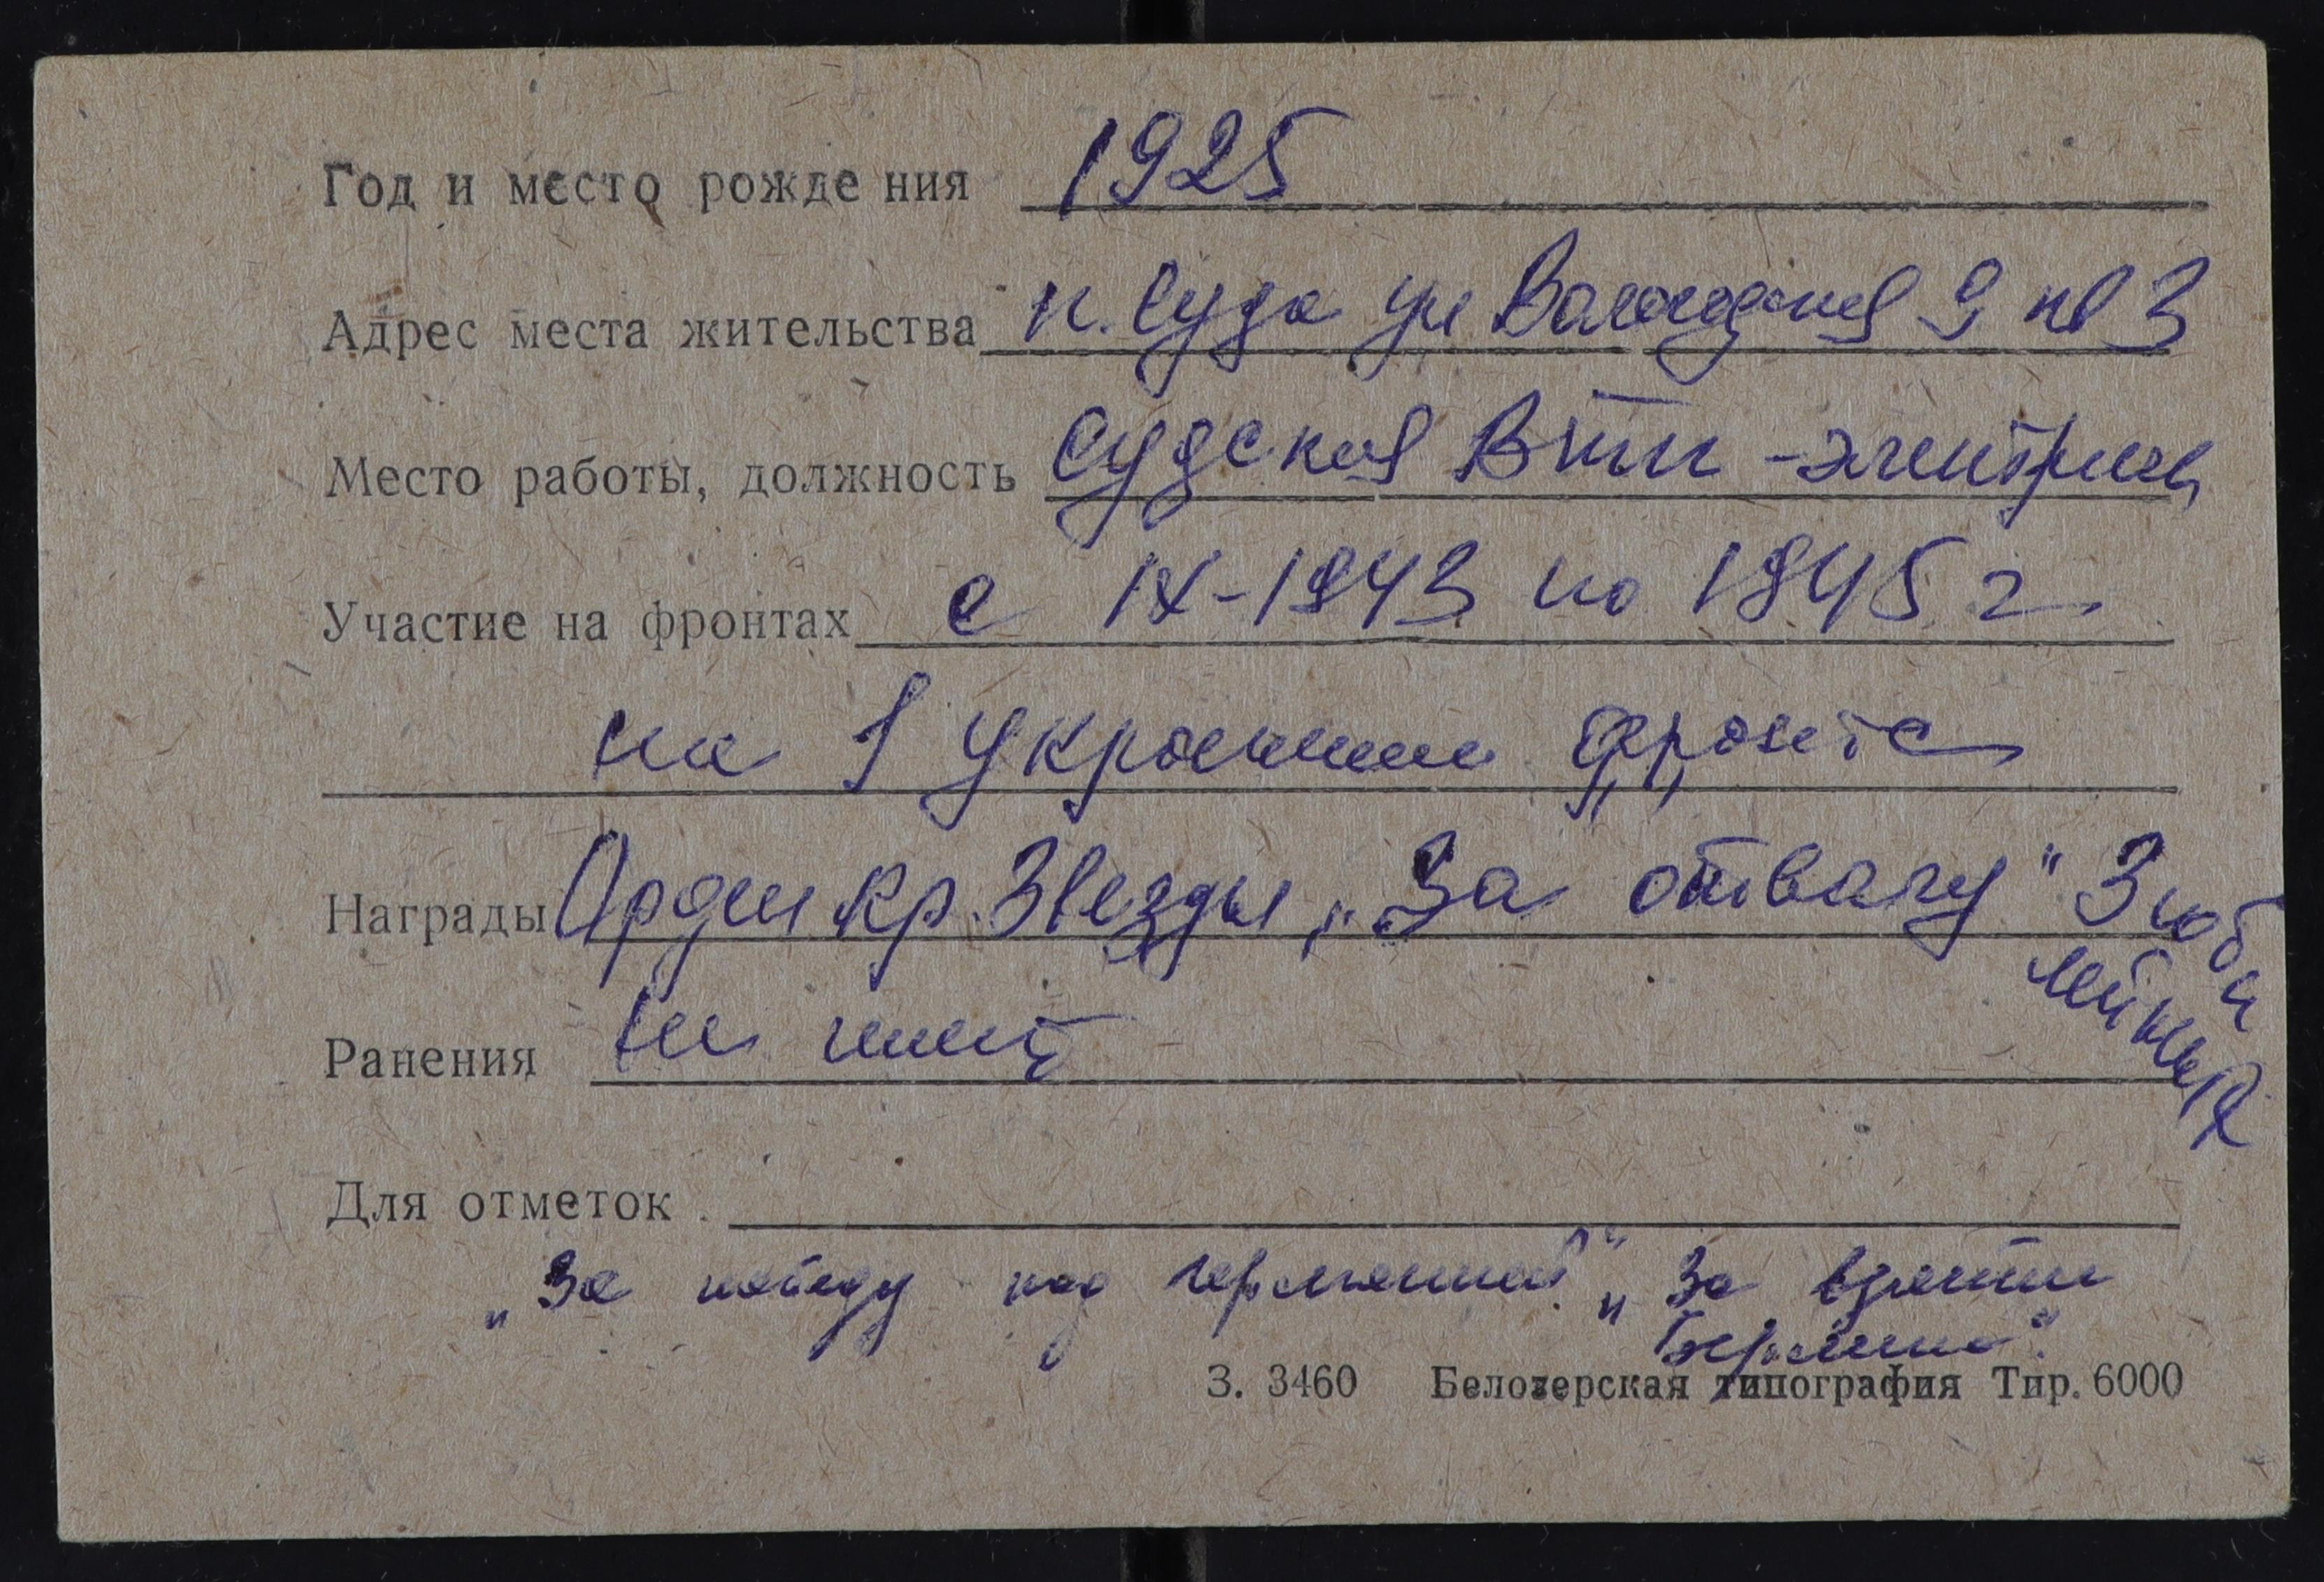 Год и место рождения 1925
Адрес места жительства п. Суда ул Вологодская 9 кв 3
Место работы, должность Судская - электрик
Участие на фронтах с IX-1943 по 1945 г.
на 1 Украинском фронте
Награды Орден Кр. Звезды, „За отвагу" 3 юби
лейных
Ранения не имеет
Для отметок
„За победу над Германией" „За взятие
Берлина".
З. 3460 Белозерская типография Тир. 6000